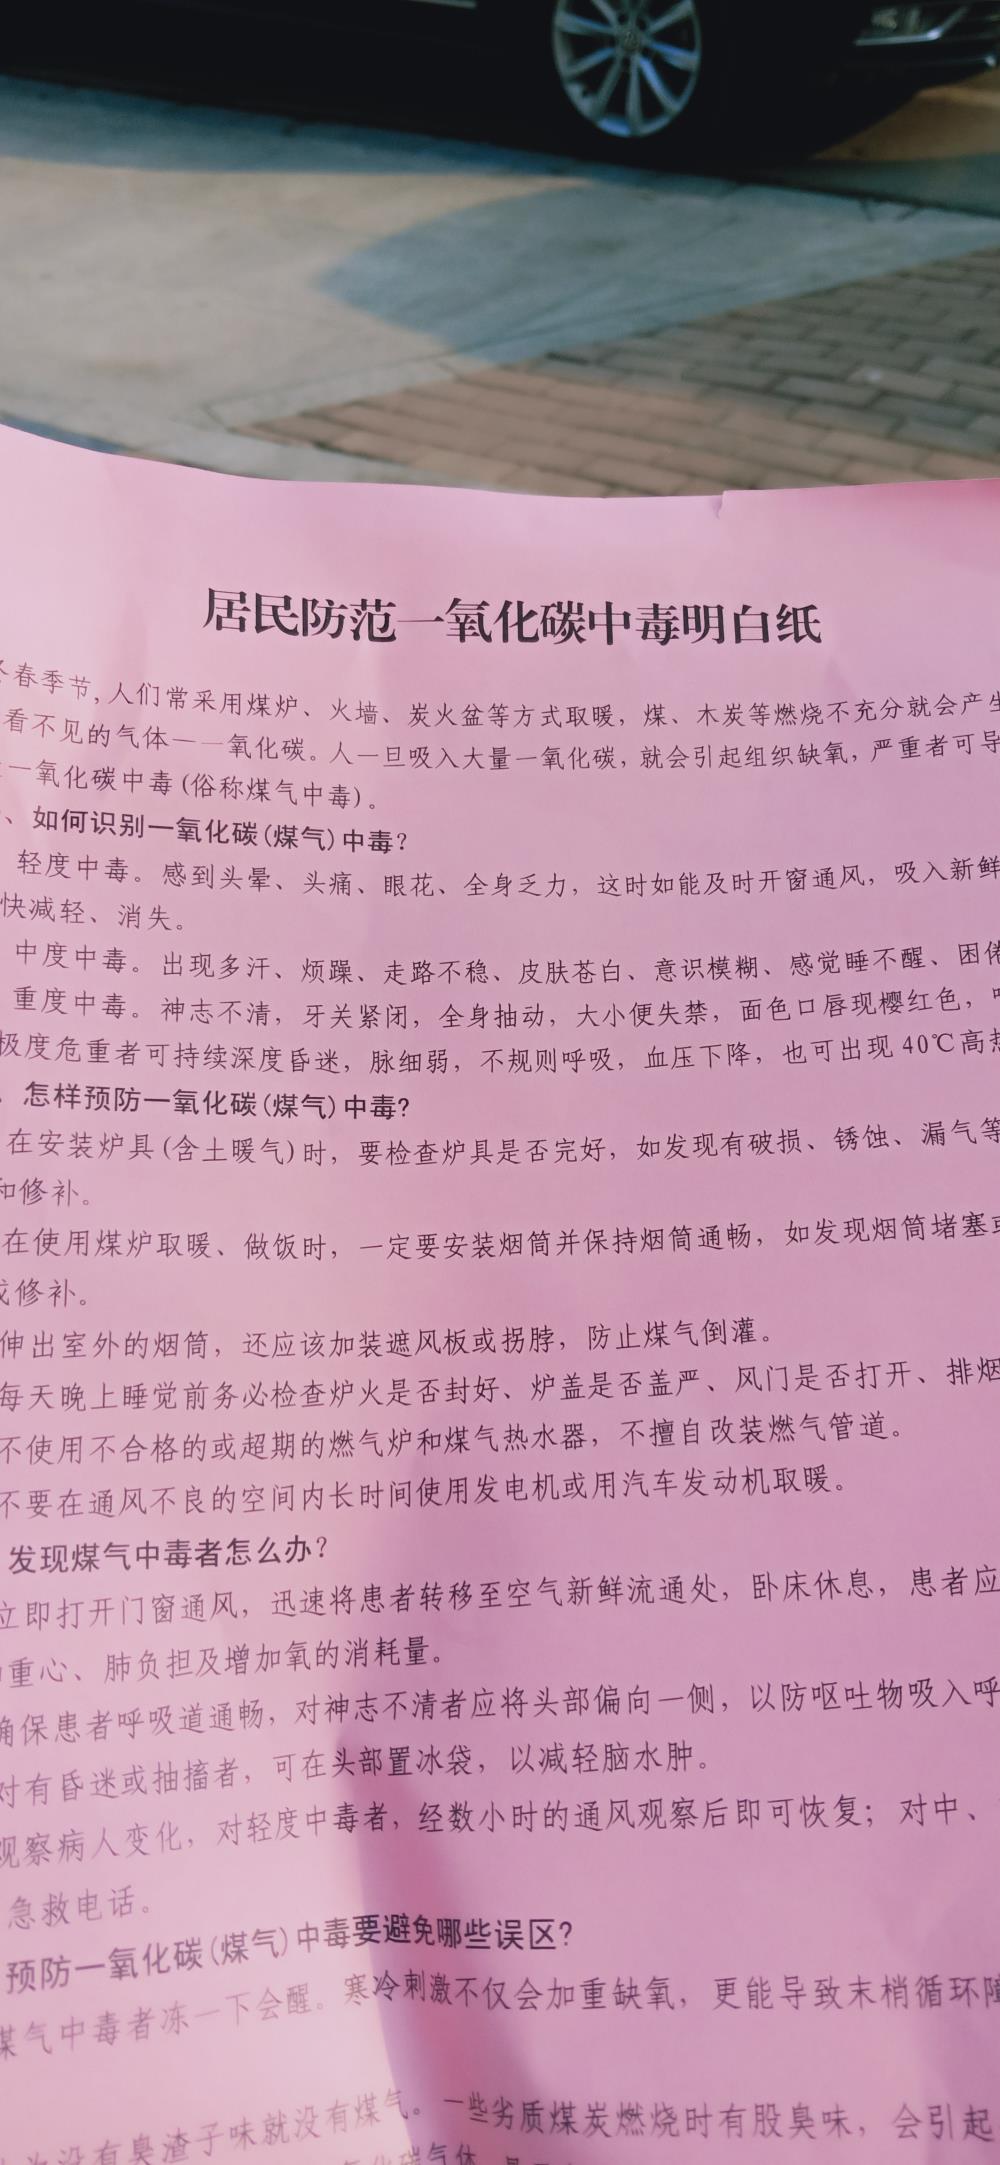 居民防范一氧化碳中毒明白纸
冬春季节,人们常采用煤炉、火墙、炭火盆等方式取暖，煤、木炭等燃烧不充分就会产生
看不见的气体——一氧化碳。人一旦吸入大量一氧化碳，就会引起组织缺氧，严重者可导
一氧化碳中毒(俗称煤气中毒)。
、如何识别一氧化碳(煤气)中毒?
轻度中毒。感到头晕、头痛、眼花、全身乏力，这时如能及时开窗通风，吸入新鲜
快减轻、消失。
中度中毒。出现多汗、烦躁、走路不稳、皮肤苍白、意识模糊、感觉睡不醒、困倦
重度中毒。神志不清，牙关紧闭，全身抽动，大小便失禁，面色口唇现樱红色，
极度危重者可持续深度昏迷，脉细弱，不规则呼吸，血压下降，也可出现40℃高热
怎样预防一氧化碳(煤气)中毒?
在安装炉具(含土暖气)时，要检查炉具是否完好，如发现有破损、锈蚀、漏气等
和修补。
在使用煤炉取暖、做饭时，一定要安装烟筒并保持烟筒通畅，如发现烟筒堵塞或
或修补。
伸出室外的烟筒，还应该加装遮风板或拐脖，防止煤气倒灌。
每天晚上睡觉前务必检查炉火是否封好、炉盖是否盖严、风门是否打开、排烟
不使用不合格的或超期的燃气炉和煤气热水器，不擅自改装燃气管道。
不要在通风不良的空间内长时间使用发电机或用汽车发动机取暖。
发现煤气中毒者怎么办?
立即打开门窗通风，迅速将患者转移至空气新鲜流通处，卧床休息，患者应
重心、肺负担及增加氧的消耗量。
确保患者呼吸道通畅，对神志不清者应将头部偏向一侧，以防呕吐物吸入呼
对有昏迷或抽搐者，可在头部置冰袋，以减轻脑水肿。
观察病人变化，对轻度中毒者，经数小时的通风观察后即可恢复；对中、
急救电话。
预防一氧化碳(煤气)中毒要避免哪些误区?
煤气中毒者冻一下会醒。寒冷刺激不仅会加重缺氧，更能导致末梢循环障
没有臭渣子味就没有煤气。一些劣质煤炭燃烧时有股臭味，会引起
氧化碳气体